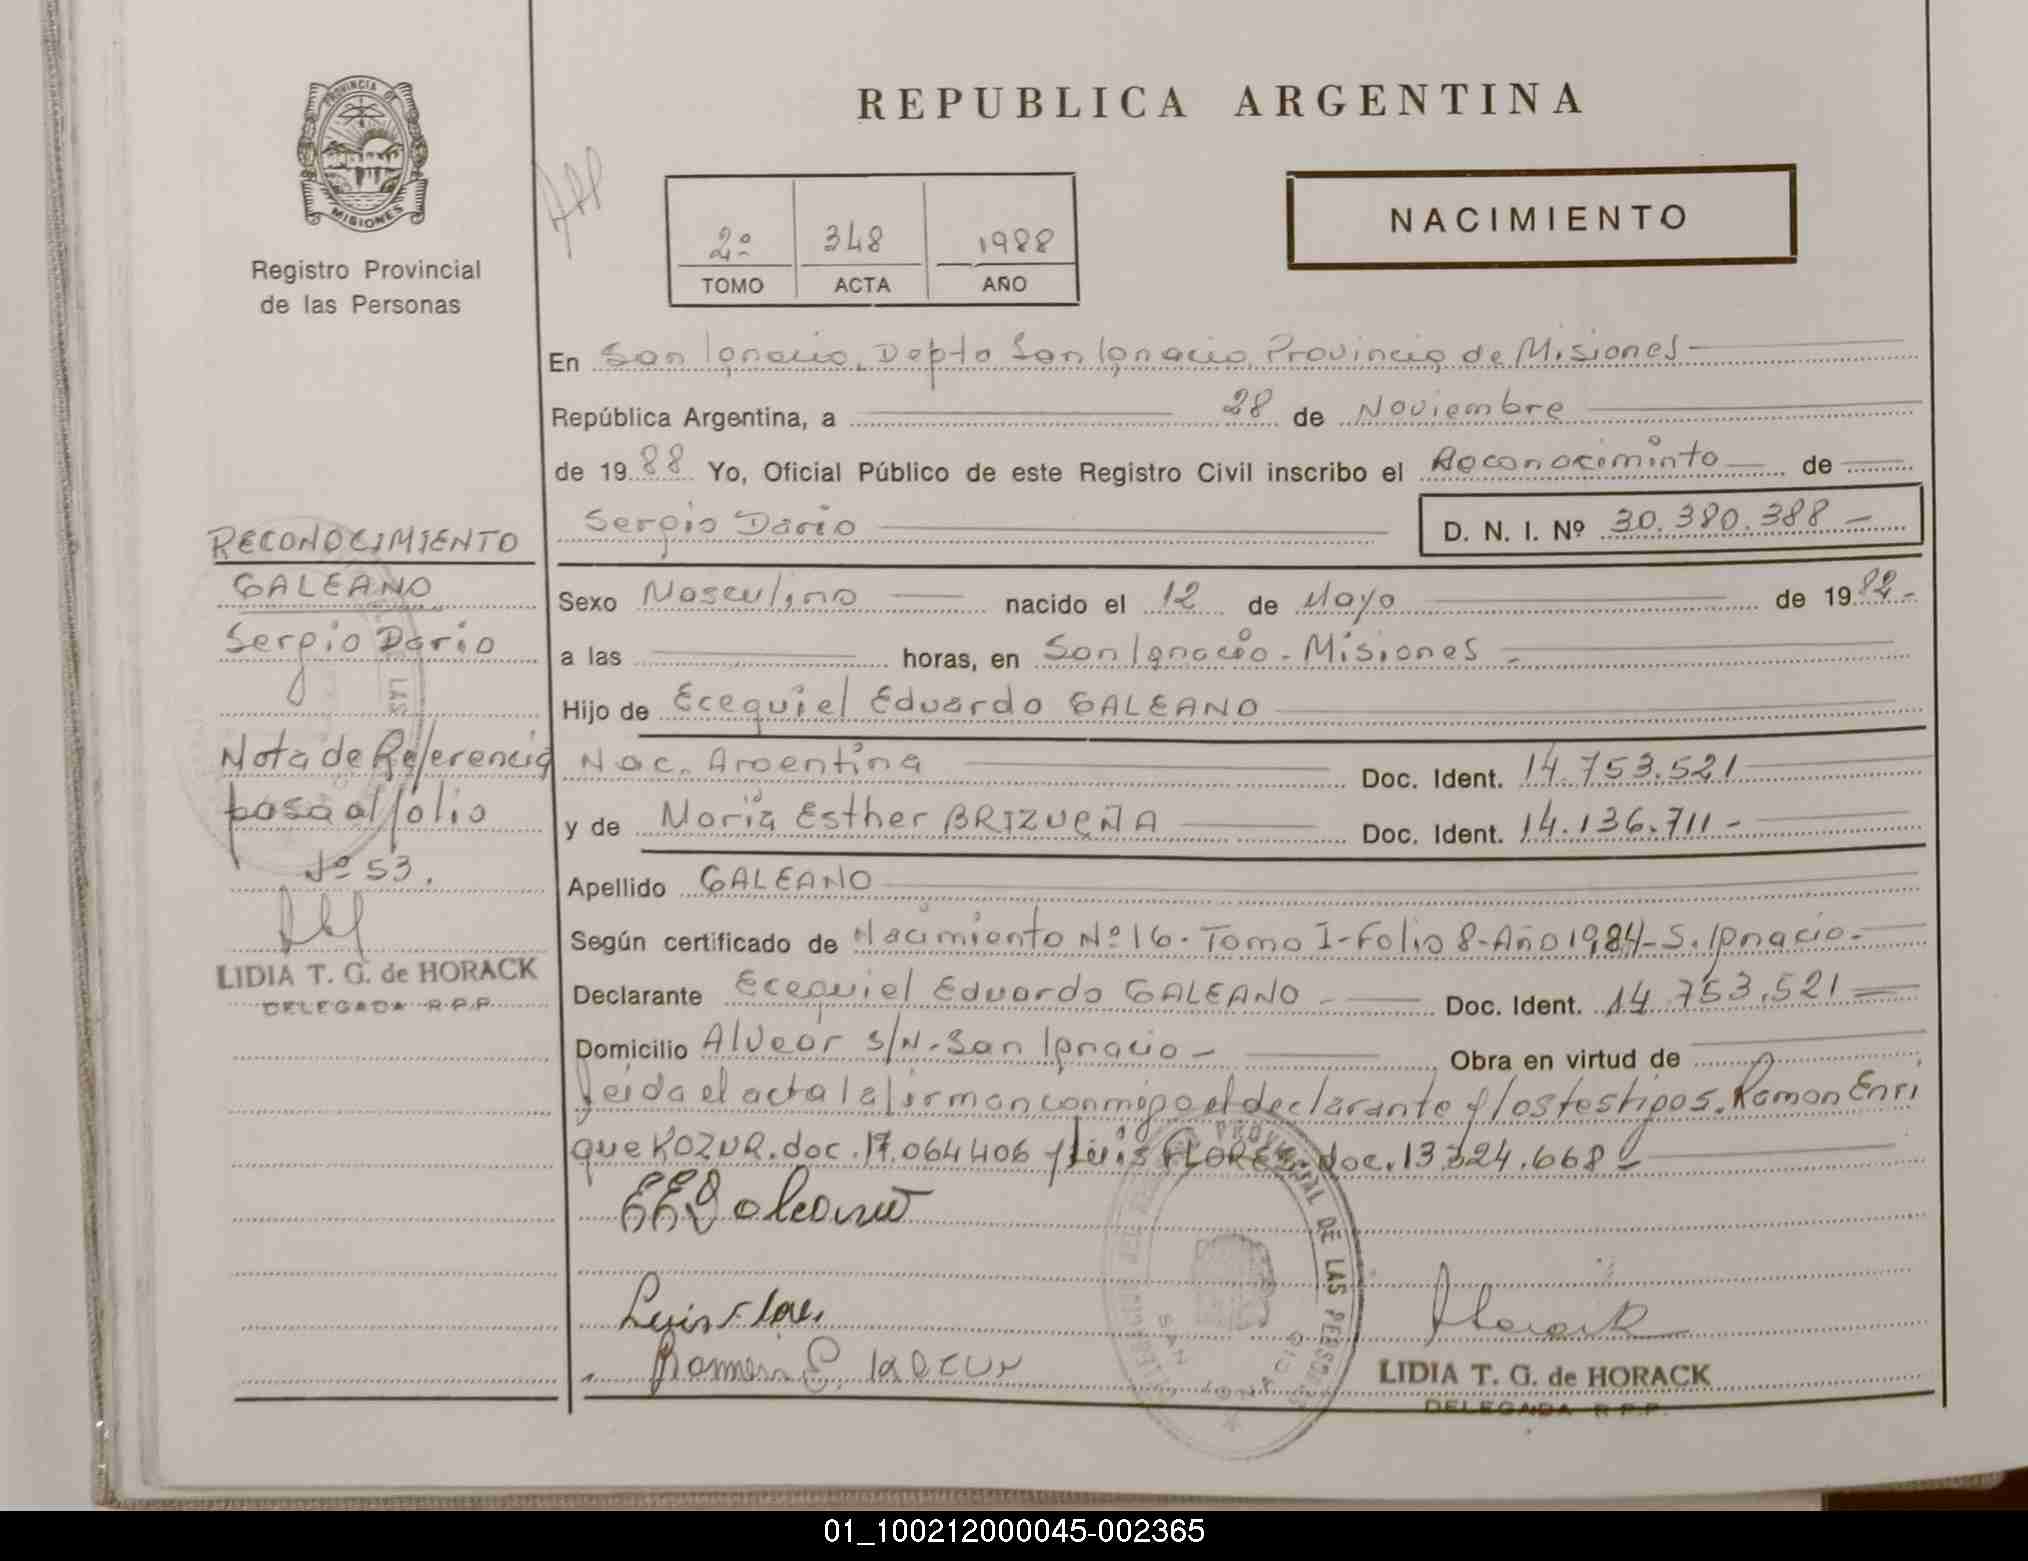 PROVINCIA DE
MISIONES
Registro Provincial
de las Personas
REPUBLICA ARGENTINA
NACIMIENTO
2º 348 1988
TOMO ACTA AÑO
En San Ignacio, Depto San Ignacio, Provincia de Misiones
República Argentina, a 28 de Noviembre
de 1988 Yo, Oficial Público de este Registro Civil inscribo el Reconociminto de
Sergio Dario D. N. I. Nº 30.380.388
Sexo Masculino nacido el 12 de Mayo de 1982
a las horas, en San Ignacio - Misiones
Hijo de Ecequiel Eduardo GALEANO
Nac. Argentina Doc. Ident. 14.753.521
y de María Esther BRIZUEÑA Doc. Ident. 14.136.711
Apellido GALEANO
Según certificado de Nacimiento Nº 16. Tomo I-Folio 8-Año 1984-S. Ignacio
Declarante Ecequiel Eduardo GALEANO Doc. Ident. 14.753.521
Domicilio Alvear S/N. San Ignacio Obra en virtud de
leida el acta la firman conmigo el declarante y los testigos. Ramon Enri
que KOZUR. doc. 17.064406 y Luis FLORES. doc. 13324.668
EEGaleano
Luis Flores
Ramon E.
LIDIA T. G. de HORACK
DELEGADA R.P.P.
SAN IGNACIO
PROVINCIAL DE LAS PERSONAS
RECONOCIMIENTO
GALEANO
Sergio Dario
LAS
Nota de Referencia
pasa al folio
Nº 53.
LIDIA T. G. de HORACK
DELEGADA R.P.P
01_100212000045-002365